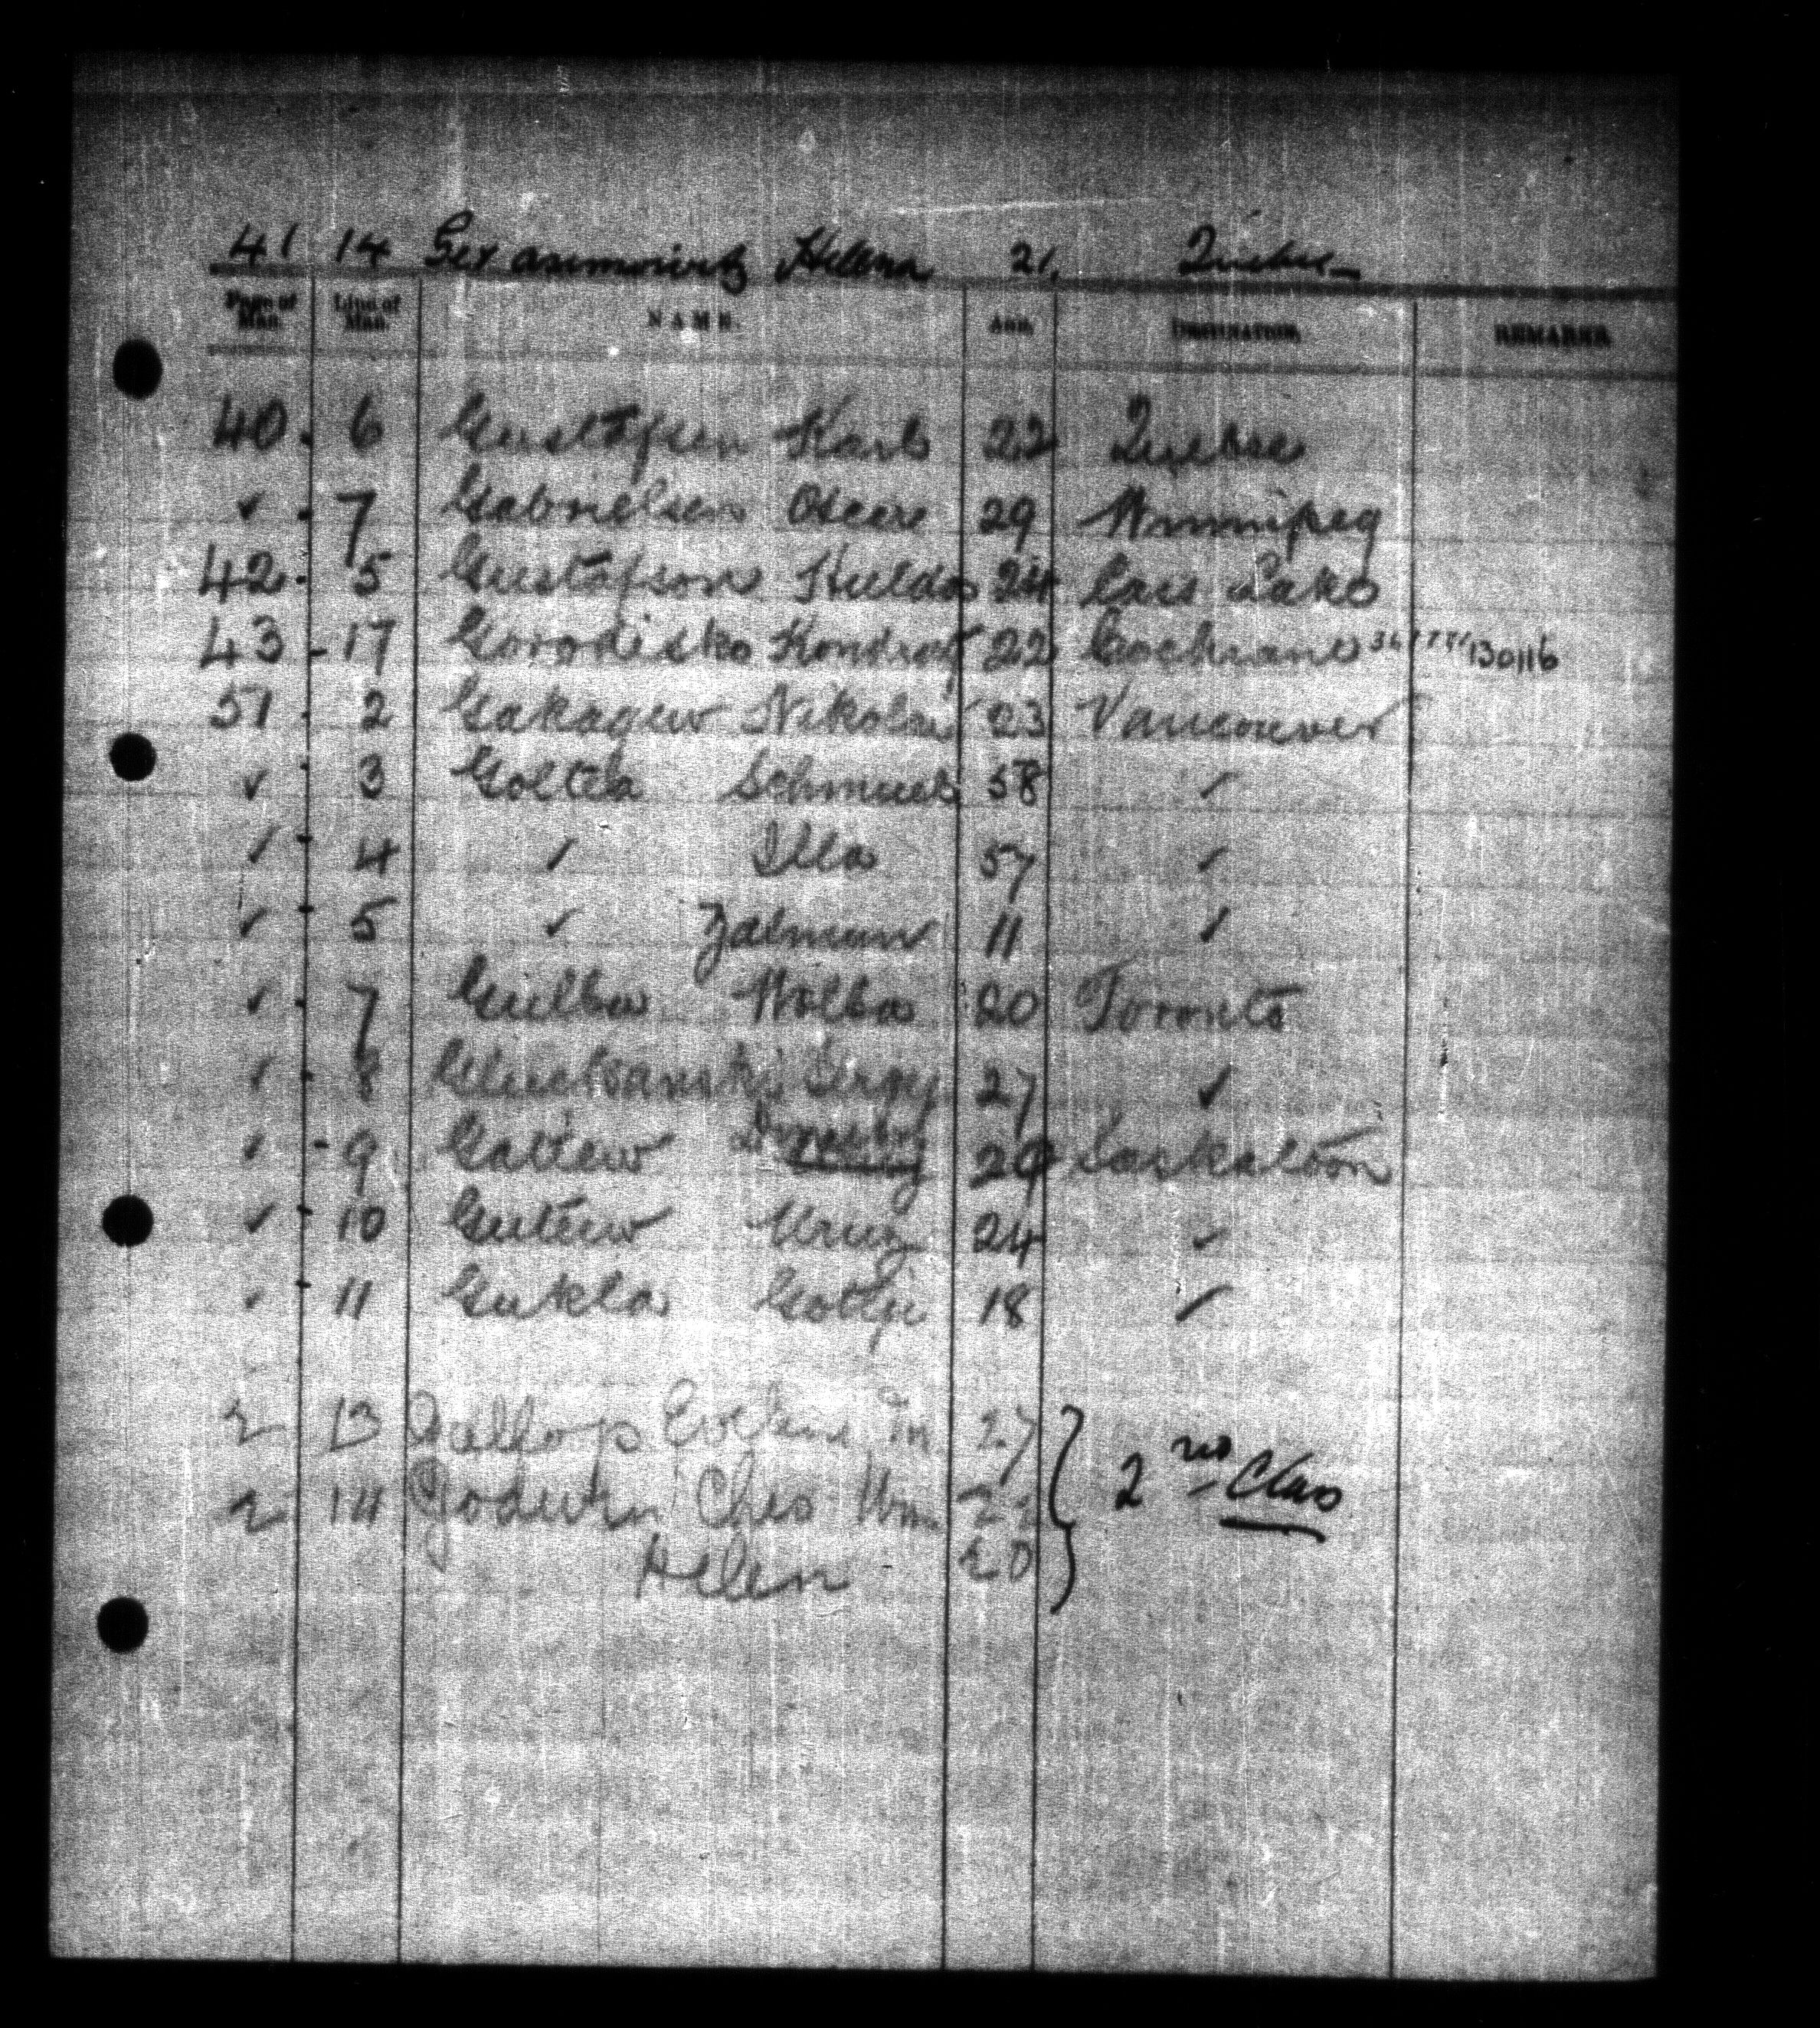 41 14 Gerasimowitz Helena 21. Quebec
Page of Man. Line of Man. NAME. AGE. DESTINATION. REMARKS
40. 6 Gustafsen Karl 22 Quebec
✓ 7 Gabrielsen Oscar 29 Winnipeg
42. 5 Gustafson Hulda 24 Lake
43 - 17 Gorodisko Kondrat 22 Cochrane 130116
51. 2 Gakagew Nikolai 23 Vancouver
✓ 3 Goltea Schmuel 58 ✓
✓ 4 ✓ Illa 57 ✓
✓ 5 ✓ Zalman 11 ✓
✓ 7 Gulba Wolba 20 Toronto
✓ 8 27 ✓
✓ - 9 Gatiew 29 Saskatoon
✓ 10 Gutew 24 ✓
✓ 11 Gukla 18 ✓
2 13 Gallop M. 27
2nd Class
2 14 Godwin Chas Wm. 22
Helen 20